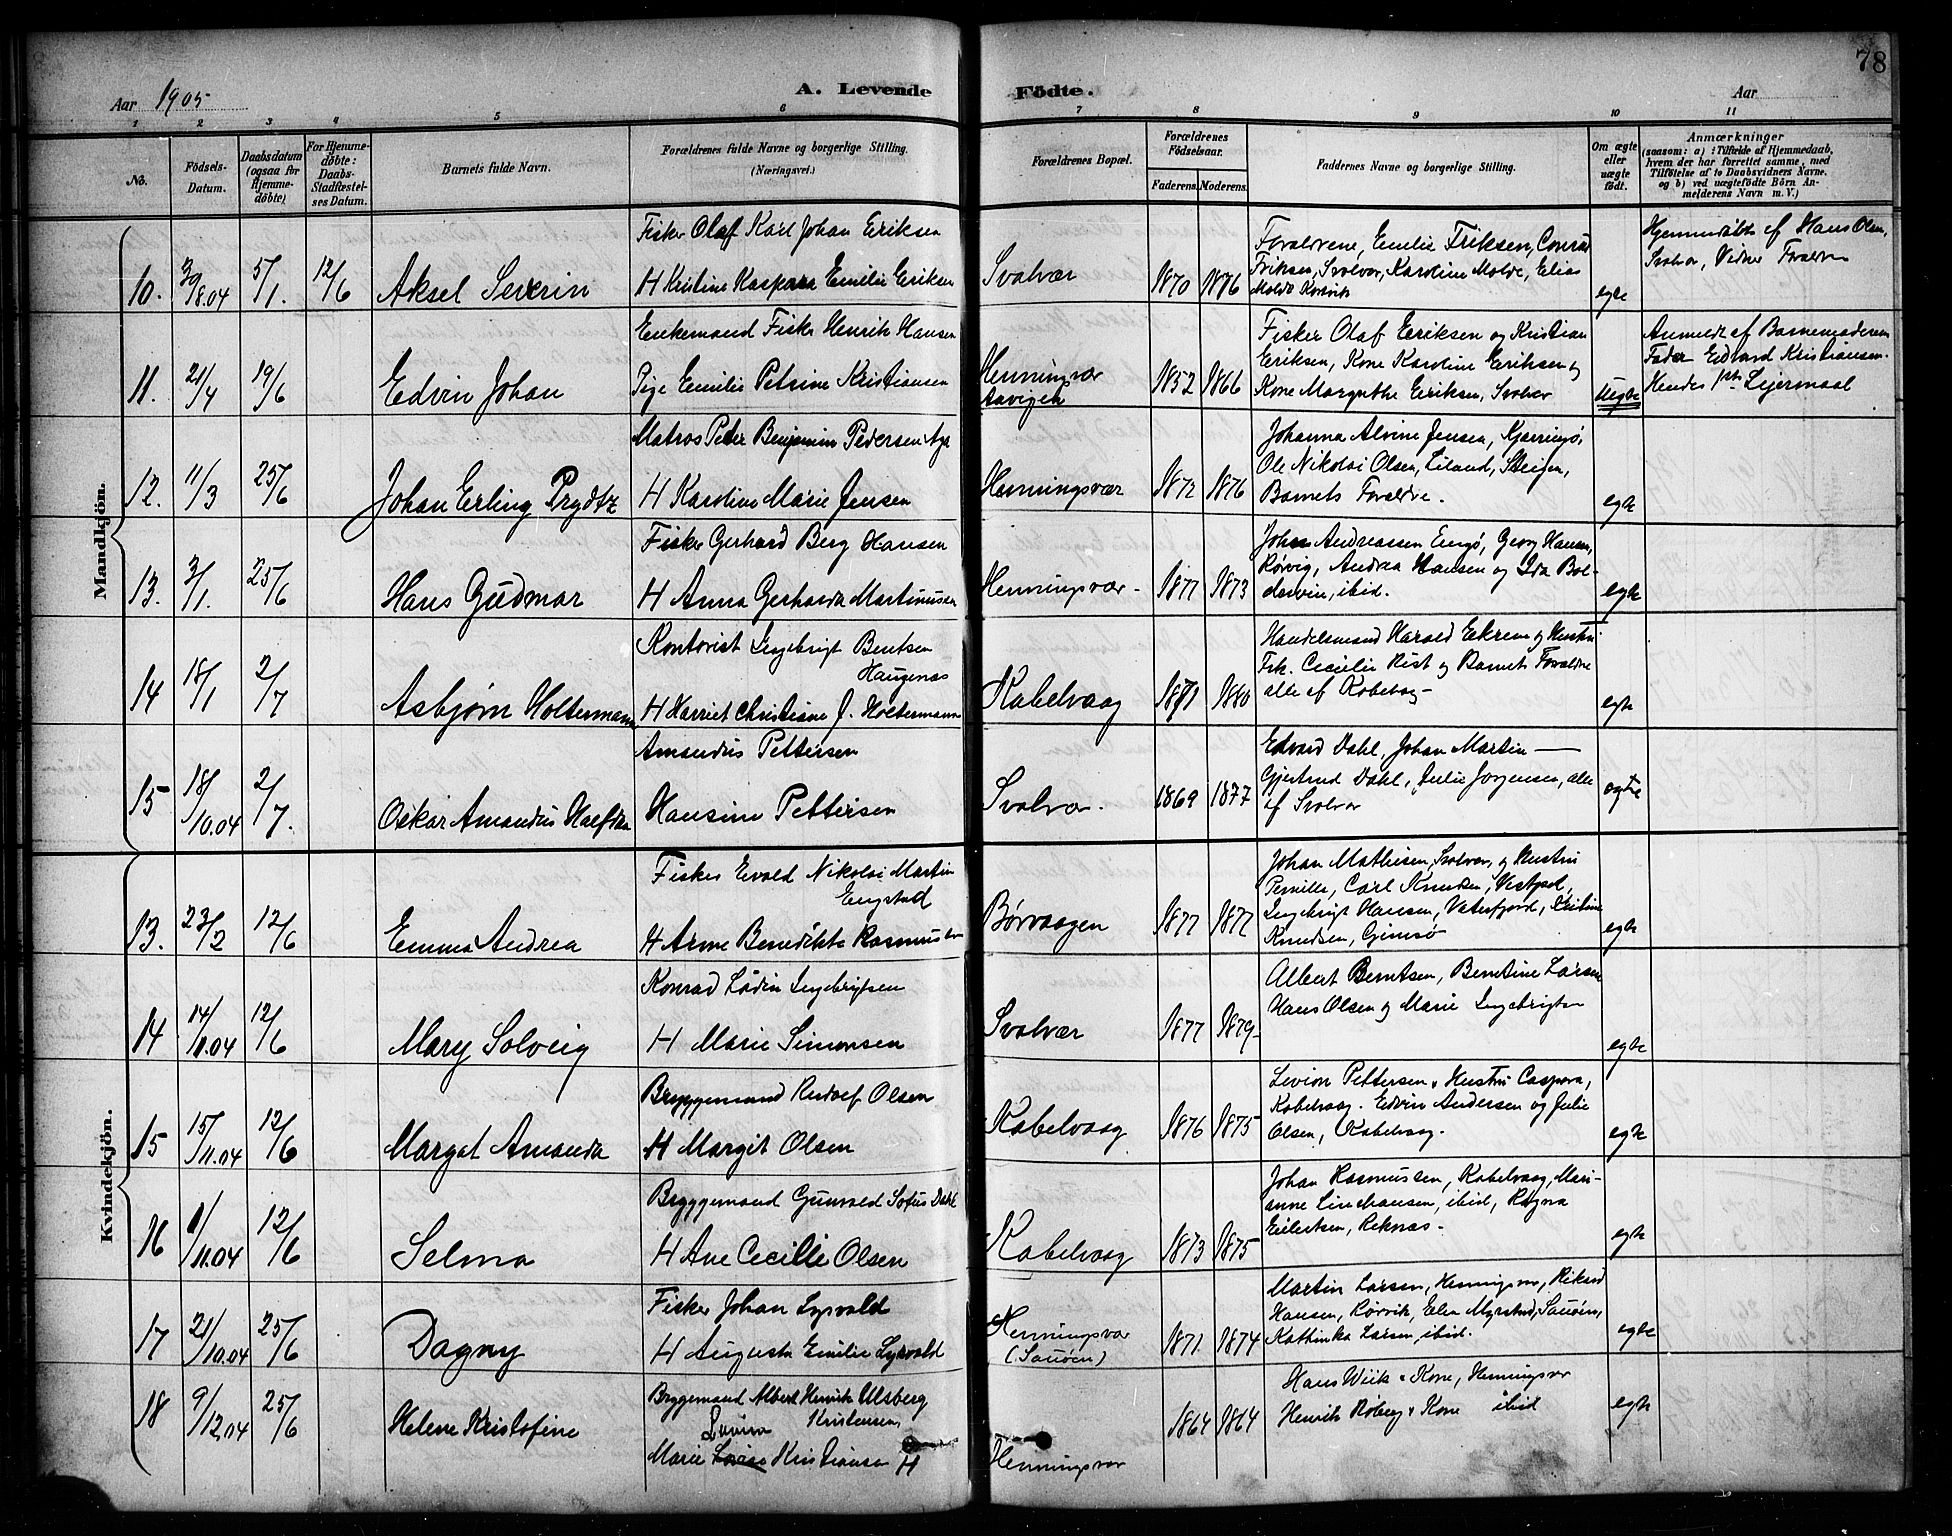 78
Aar 1905
A. Levende Födte.
Aar
1 2 3 4 5 6 7 8 9 10 11
No.
Födsels-
Datum.
Daabsdatum
(ogsaa for
Hjemme-
döbte)
For Hjemme-
döbte:
Daabs-
Stadfæstel-
ses Datum.
Barnets fulde Navn.
Forældrenes fulde Navne og borgerlige Stilling.
(Næringsvei.)
Forældrenes Bopæl.
Forældrenes
Födselsaar.
Faderens. Moderens.
Faddernes Navne og borgerlige Stilling.
Om ægte
eller
uægte
födt.
Anmærkninger
(saasom: a) i Tilfælde af Hjemmedaab,
hvem der har forrettet samme, med
Tilföielse af to Daabsvidners Navne,
og b) ved uægtefödte Börn An-
melderens Navn m. V.)
Mandkjön.
10. 30/8.04 5/1. 12/6 Aksel Severin
Fisker Olaf Karl Johan Eriksen
H Kristine Kaspara Emilie Eriksen
Svolvær 1870 1876
Forældrene, Emilie Eriksen, Conrad
Eriksen, Svolvær, Karoline Molde, Elias
Molde
egte
Hjemmedøbt af Hans Olsen,
Svolvær, Vidner Forældre
11. 21/4 19/6 Edvin Johan
Enkemand Fisker Henrik Hansen
Pige Emilie Petrine Kristiansen
Henningsvær
1852 1866
Fisker Olaf Eriksen og Kristian
Eriksen, Kone Karoline Eriksen og
Kone Margrethe Eriksen, Svolvær
Uegte
Anmeldt af Barnemoderens
Fader Edvard Kristiansen.
Hendes 1ste Lejermaal
12. 11/3 25/6 Johan Erling Prydtz
Matros Peder Benjamin Pedersen
H Karoline Marie Jensen
Henningsvær 1872 1876
Johanna Alvine Jensen, Kjerringø,
Ole Nikolai Olsen, Eiland, Steigen,
Barnets Forældre.
egte
13. 3/1. 25/6 Hans Gudmar
Fisker Gerhard Berg Hansen
H Anna Gerharda Martinussen
Henningsvær 1877 1873
Johan Andreassen Engø, Georg Hansen,
Rørvig, Andrea Hansen og Ida Bol-
dewin, ibid.
egte
14 18/1 2/7 Asbjørn Holtermann
Kontorist Ingebrigt Bentsen
Haugenas
H Harriet Christiane J. Holtermann
Kabelvaag 1871 1880
Handelsmand Harald Eekrem og Hustru
Frk. Cecilie Rist og Barnets Forældre
alle af Kabelvag
egte
15 18/10.04 2/7. Oskar Amandus Halfdan
Amandus Pettersen
Hansine Pettersen
Svolvær. 1869 1877
Edvard Dahl, Johan Martin
Gjertrud Dahl, Julie Jørgensen, alle
af Svolvær
egte
Kvindekjön.
13. 23/2 12/6 Emma Andrea
Fisker Evald Nikolai Martin
Engstad
H Anne Benedikte Rasmussen
Børvaagen 1877 1877
Johan Mathisen, Svolvær, og Hustru
Pernille, Carl Knudsen, Vestpol,
Ingebrigt Hansen, Vaterfjord, Kristine
Knudsen, Gimsø
egte
14 14/11.04 12/6 Mary Solveig
Konrad Lådin Ingebrigtsen
H Marie Simonsen
Svolvær 1877 1879
Albert Berntsen, Berntine Larsen
Hans Olsen og Marie Ingebrigtsen
egte
15 15/11.04 12/6 Margot Amanda
Bryggemand Rudolf Olsen
H Margit Olsen
Kabelvaag 1876 1875
Levion Pettersen & Hustru Caspara,
Kabelvaag. Edvin Andersen og Julie
Olsen, Kabelvaag.
egte
16 1/11.04 12/6 Selma
Bryggemand Gunvald Sofus Dahl
H Ane Cecilie Olsen
Kabelvaag 1873 1875
Johan Rasmussen, Kabelvaag, Mari-
anne Linehansen, ibid, Ragna
Eilertsen, Reknæs.
egte
17 21/10.04 25/6 Dagny
Fisker Johan Lysvold
H Augusta Emilie Lysvold
Henningsvær
(Sauøen)
1871 1874
Martin Larsen, Henningsvær, Rikard
Hansen, Rørvik, Elen Myrstad, Sauøen,
Kathinka Larsen, ibid.
egte
18 9/12.04 25/6 Helene Kristofine
Bryggemand Albert Henrik Ulsberg
Kristensen
Lovisa
Marie Kristiansen H
Henningsvær
1864 1864
Hans Wiik & Kone, Henningsvær
Henrik Roberg & Kone ibid
egte